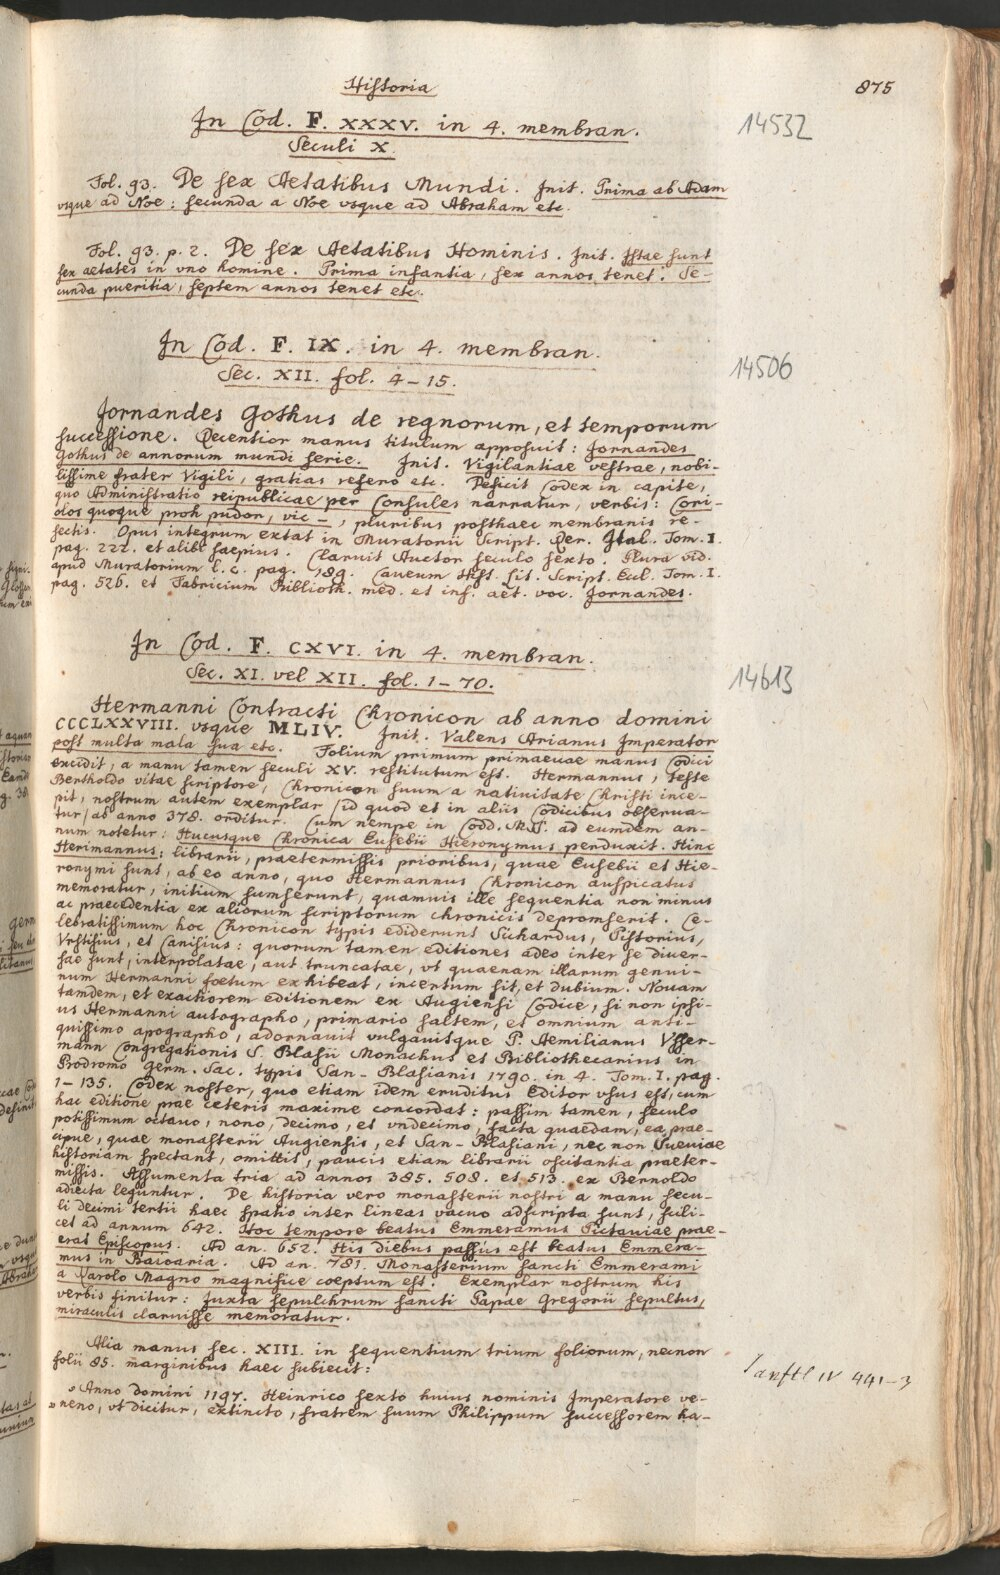 Historia
875
In Cod. F. XXXV. in 4. membran.
14532
Seculi X.
Fol. 93. De sex Aetatibus Mundi. Init. Prima ab Adam
vsque ad Noe: secunda a Noe vsque ad Abraham etc.
Fol. 93. p. 2. De sex Aetatibus Hominis. Init. Istae sunt
sex aetates in vno homine. Prima infantia, sex annos tenet. Se-
cunda pueritia, septem annos tenet etc.
In Cod. F. IX. in 4. membran.
14506
Sec. XII. fol. 4-15.
Jornandes Gothus de regnorum, et temporum
successione. Recentior manus titulum apposuit: Jornandes
Gothus de annorum mundi serie. Init. Vigilantiae vestrae, nobi-
lissime frater Vigili, gratias refero etc. Deficit Codex in capite,
quo Administratio reipublicae per Consules narratur, verbis: Cori-
olos quoque proh pudor, vic-, pluribus posthaec membranis re-
sectis. Opus integrum extat in Muratorii Script. Rer. Ital. Tom. I.
pag. 222. et alibi saepius. Claruit Auctor seculo sexto. Plura vid.
apud Muratorium l. c. pag. 189. Caveum Hist. lit. Script. Eccl. Tom. I.
pag. 526. et Fabricium Biblioth. med. et inf. aet. voc. Jornandes.
In Cod. F. CXVI. in 4. membran.
14613
Sec. XI. vel XII. fol. 1-70.
Hermanni Contracti Chronicon ab anno domini
CCCLXXVIII. vsque MLIV. Init. Valens Arianus Imperator
post multa mala sua etc. Folium primum primaeuae manus Codici
excidit, a manu tamen seculi XV. restitutum est. Hermannus, teste
Bertholdo vitae scriptore, Chronicon suum a natiuitate Christi ince-
pit, nostrum autem exemplar (id quod et in aliis Codicibus obserua-
tur) ab anno 378. orditur. Cum nempe in Codd. MSS. ad eumdem an-
num notetur: Hucusque Chronica Eusebii Hieronymus perduxit. Hinc
Herimannus: librarii, praetermissis prioribus, quae Eusebii et Hie-
ronymi sunt, ab eo anno, quo Hermannus Chronicon auspicatus
memoratur, initium sumserunt, quamuis ille sequentia non minus
ac praecedentia ex aliorum scriptorum chronicis depromserit. Ce-
lebratissimum hoc Chronicon typis ediderunt Sichardus, Pistorius,
Vrstisius, et Canisius: quorum tamen editiones adeo inter se diuer-
sae sunt, interpolatae, aut truncatae, vt quaenam illarum genui-
num Hermanni foetum exhibeat, incertum sit, et dubium. Nouam
tamdem, et exactiorem editionem ex Augiensi Codice, si non ipsi-
us Hermanni autographo, primario saltem, et omnium anti-
quissimo apographo, adornauit vulgauitque P. Aemilianus Vsser-
mann Congregationis S. Blasii Monachus et Bibliothecarius in
Prodromo Germ. Sac. typis San-Blasianis 1790. in 4. Tom. I. pag.
1-135. Codex noster, quo etiam idem eruditus Editor vsus est, cum
hac editione prae ceteris maxime concordat: passim tamen, seculo
potissimum octauo, nono, decimo, et vndecimo, facta quaedam, ea prae-
cipue, quae monasterii Augiensis, et San-Blasiani, nec non Sueviae
historiam spectant, omittit, paucis etiam librarii oscitantia praeter-
missis. Assumenta tria ad annos 385. 508. et 513. ex Bernoldo
adiecta leguntur. De historia vero monasterii nostri a manu secu-
li decimi tertii haec spatio inter lineas vacuo adscripta sunt, scili-
cet ad annum 642. Hoc tempore beatus Emmeramus Pictaviae prae-
erat Episcopus. Ad an. 652. His diebus passus est beatus Emmera-
mus in Baioaria. Ad an. 781. Monasterium sancti Emmerami
a Carolo Magno magnifice coeptum est. Exemplar nostrum his
verbis finitur: Juxta sepulchrum sancti Papae Gregorii sepultus,
miraculis claruisse memoratur.
Alia manus sec. XIII. in sequentium trium foliorum, necnon
folii 85. marginibus haec subiecit:
Sanftl IV 441-3
„Anno domini 1197. Heinrico sexto huius nominis Imperatore ve-
„neno, vt dicitur, extincto, fratrem suum Philippum successorem ha-